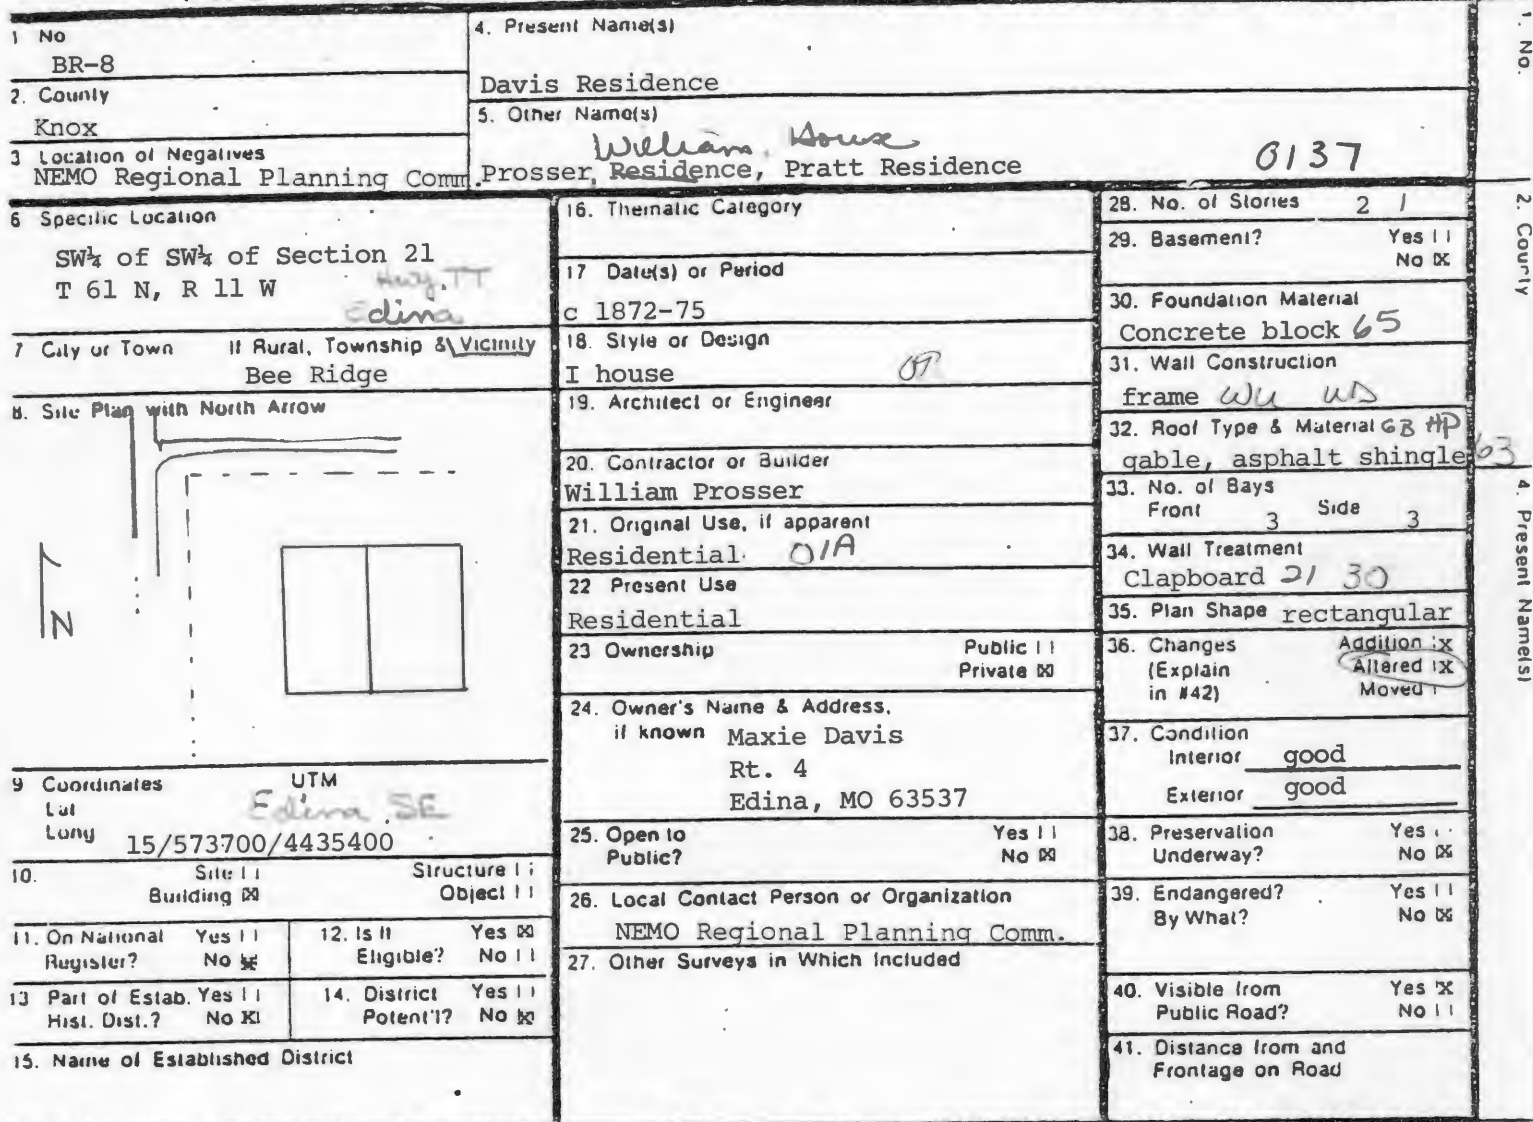 1 No
BR-8
2. County
Knox
3 Location of Negatives
NEMO Regional Planning Comm.
4. Present Name(s)
Davis Residence
5. Other Name(s)
William House
Prosser, Residence, Pratt Residence
0137
6 Specific Location
SW¼ of SW¼ of Section 21
T 61 N, R 11 W
Hwy. TT
Edina
7 City or Town If Rural, Township & Vicinity
Bee Ridge
8. Site Plan with North Arrow
N
9 Coordinates UTM
Lat
Long
Edina SE
15/573700/4435400
10. Site | | Structure | |
Building [X] Object | |
11. On National Register? Yes | | No [X]
12. Is It Eligible? Yes [X] No | |
13 Part of Estab. Hist. Dist.? Yes | | No [X]
14. District Potent'l? Yes | | No [X]
15. Name of Established District
16. Thematic Category
17 Date(s) or Period
c 1872-75
18. Style or Design
I house
19. Architect or Engineer
20. Contractor or Builder
William Prosser
21. Original Use, if apparent
Residential 01A
22 Present Use
Residential
23 Ownership Public | |
Private [X]
24. Owner's Name & Address,
if known Maxie Davis
Rt. 4
Edina, MO 63537
25. Open to Yes | |
Public? No [X]
26. Local Contact Person or Organization
NEMO Regional Planning Comm.
27. Other Surveys in Which Included
28. No. of Stories 2 1
29. Basement? Yes | |
No [X]
30. Foundation Material
Concrete block 65
31. Wall Construction
frame WU WD
32. Roof Type & Material GB HP
gable, asphalt shingle 63
33. No. of Bays
Front 3 Side 3
34. Wall Treatment
Clapboard 21 30
35. Plan Shape rectangular
36. Changes Addition [X]
(Explain Altered [X]
in #42) Moved | |
37. Condition
Interior good
Exterior good
38. Preservation Yes | |
Underway? No [X]
39. Endangered? Yes | |
By What? No [X]
40. Visible from Yes [X]
Public Road? No | |
41. Distance from and
Frontage on Road
1. No.
2. County
4. Present Name(s)